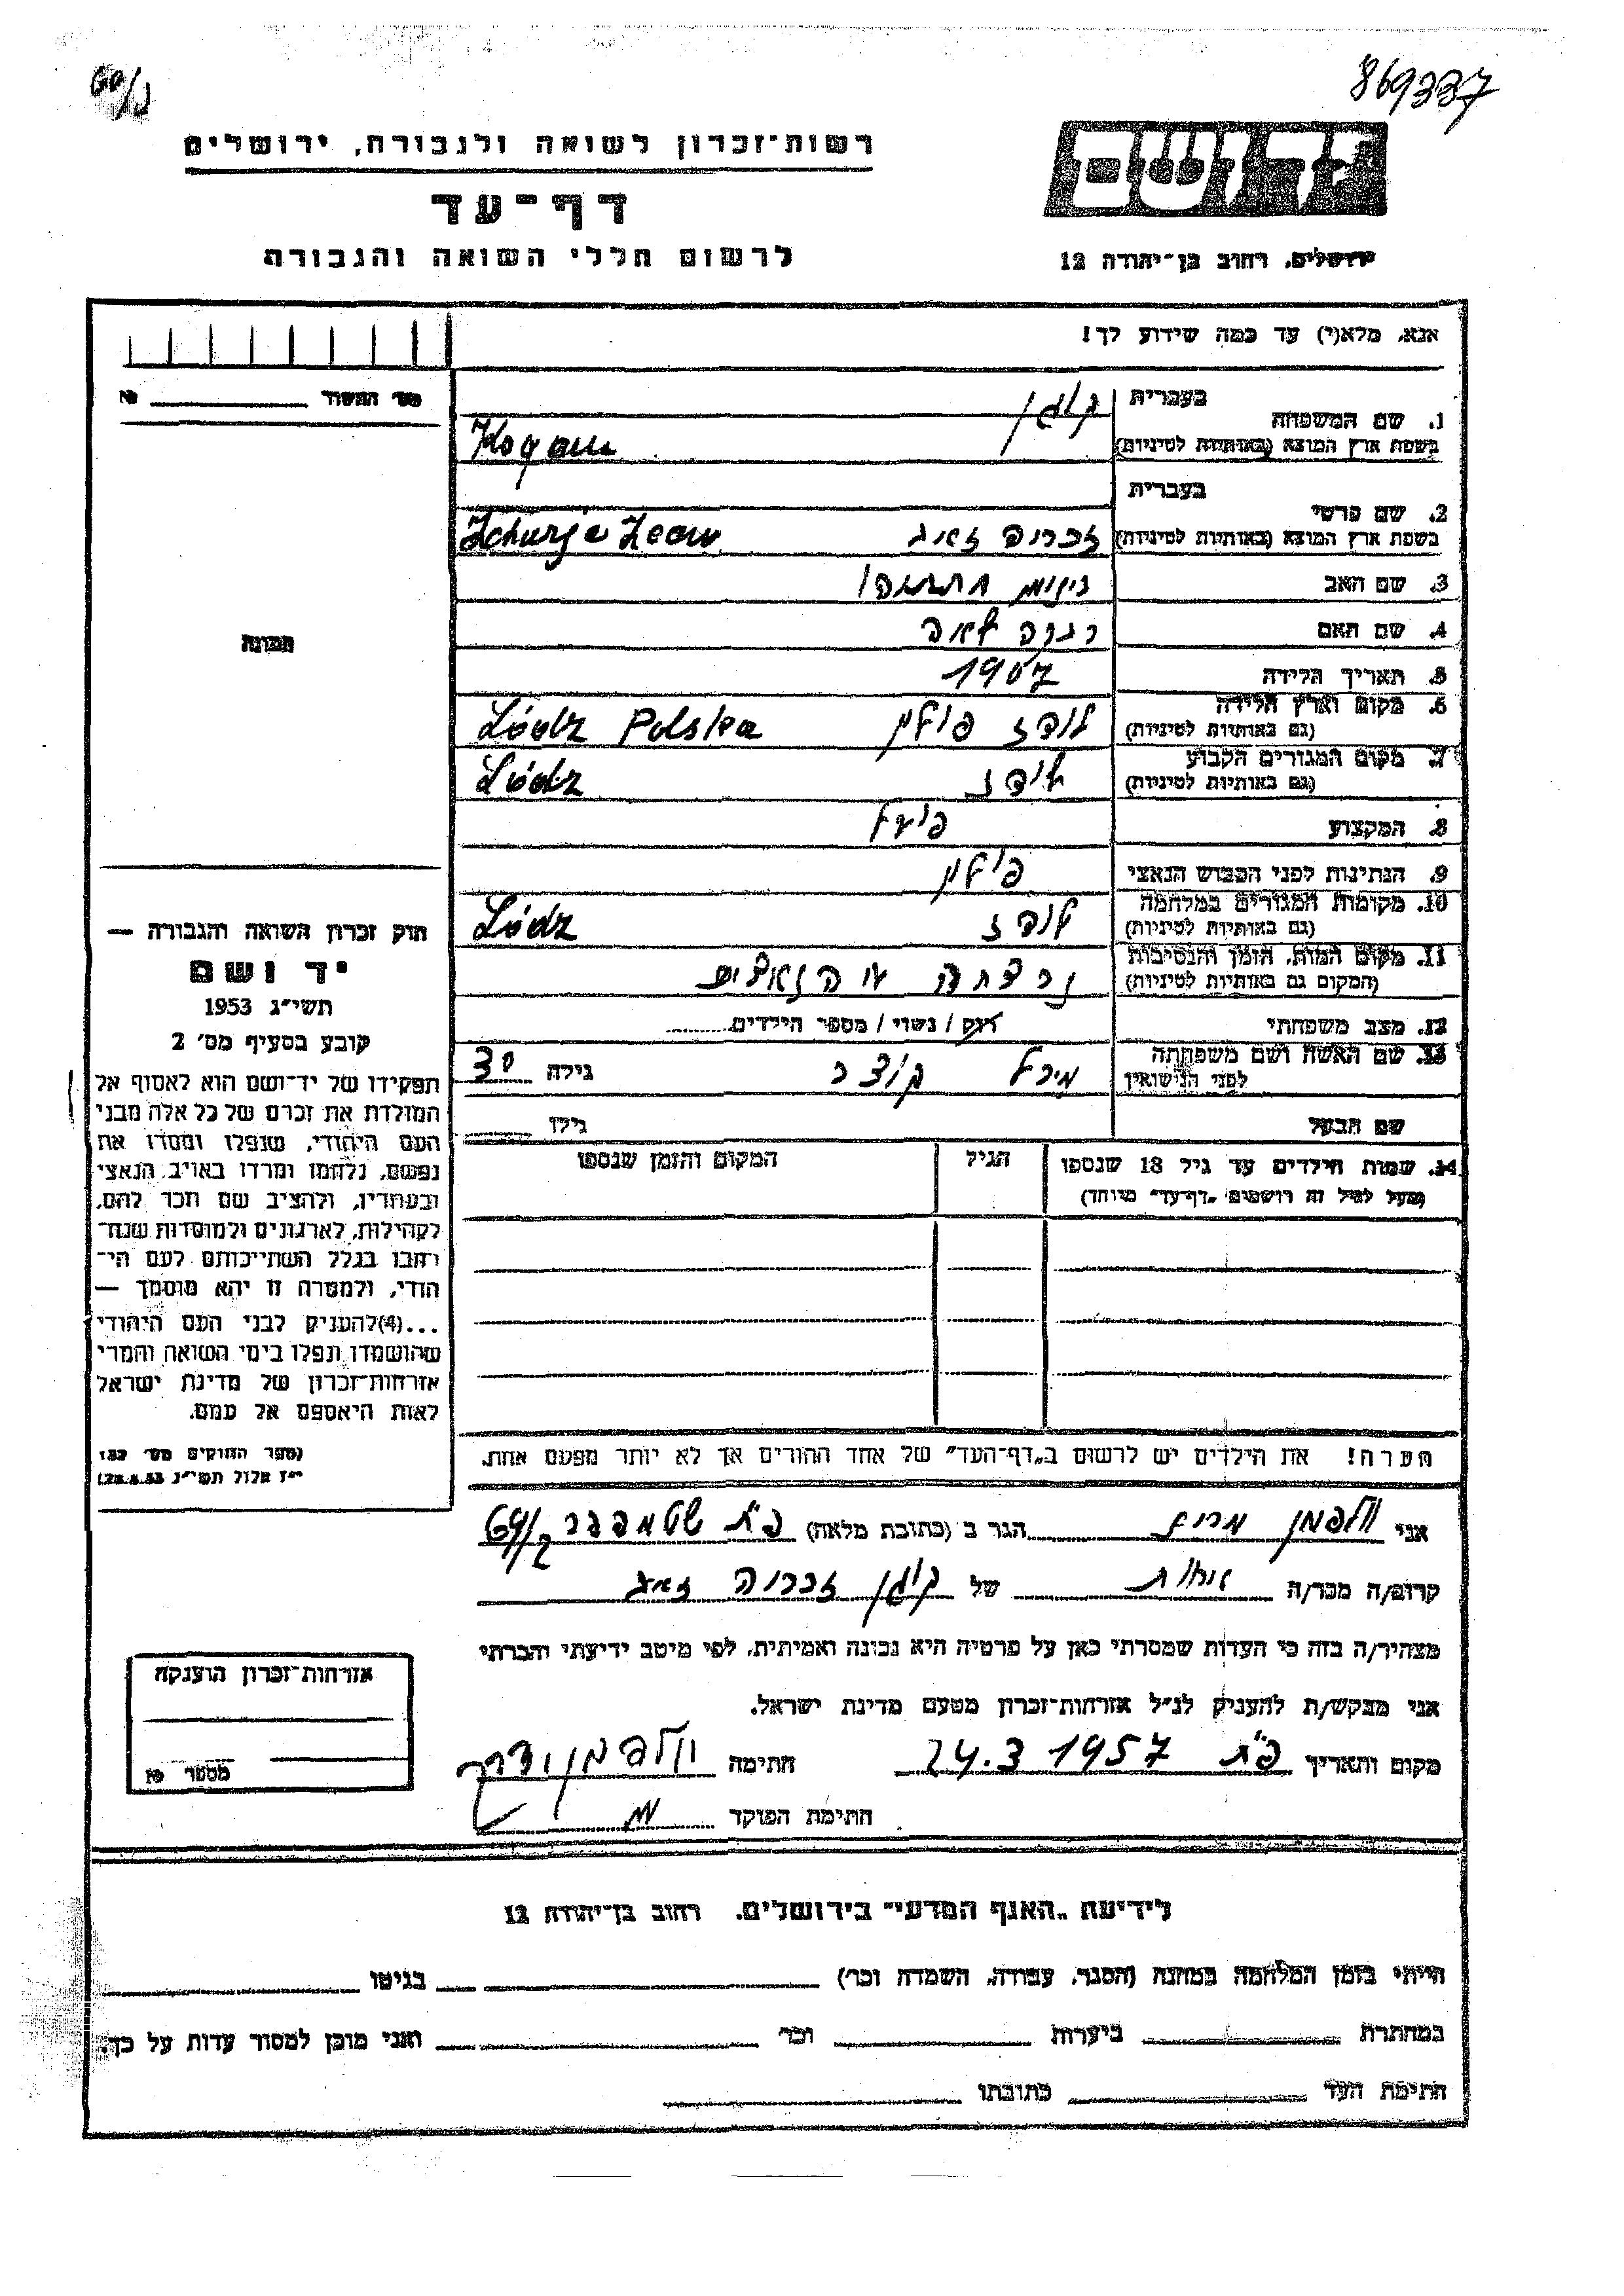 869337
רשות־זכרון לשואה ולגבורה, ירושלים
דף־עד
לרשום חללי השואה והגבורה
יד ושם
ירושלים, רחוב בן־יהודה 12
אנא, מלא(י) עד כמה שידוע לך!
מס׳ המשרד №
1. שם המשפחה
בעברית קוגן
בשפת ארץ המוצא (באותיות לטיניות) Kogan
2. שם פרטי
בעברית
בשפת ארץ המוצא (באותיות לטיניות) זכריה זאב
3. שם האב
4. שם האם לאה
5. תאריך הלידה 1907
6. מקום וארץ הלידה
(גם באותיות לטיניות) לודז פולין Łódz Polska
7. מקום המגורים הקבוע
(גם באותיות לטיניות) לודז Łódz
8. המקצוע פועל
9. הנתינות לפני הכבוש הנאצי פולין
10. מקומות המגורים במלחמה
(גם באותיות לטיניות) לודז Łódz
11. מקום המות, הזמן והנסיבות
(המקום גם באותיות לטיניות)
12. מצב משפחתי רוק / נשוי / מספר הילדים
13. שם האשה ושם משפחתה
לפני הנישואין מירל גילה 30
שם הבעל גילו
14. שמות הילדים עד גיל 18 שנספו
(מעל לגיל זה רושמים „דף־עד״ מיוחד)
הגיל
המקום והזמן שנספו
הערה! את הילדים יש לרשום ב„דף־העד״ של אחד ההורים אך לא יותר מפעם אחת.
תמונה
חוק זכרון השואה והגבורה —
יד ושם
תשי״ג 1953
קובע בסעיף מס׳ 2
תפקידו של יד־ושם הוא לאסוף אל
המולדת את זכרם של כל אלה מבני
העם היהודי, שנפלו ומסרו את
נפשם, נלחמו ומרדו באויב הנאצי
ובעוזריו, ולהציב שם וזכר להם,
לקהילות, לארגונים ולמוסדות שנח־
רבו בגלל השתייכותם לעם הי־
הודי, ולמטרה זו יהא מוסמך —
...(4)להעניק לבני העם היהודי
שהושמדו ונפלו בימי השואה והמרי
אזרחות־זכרון של מדינת ישראל
לאות היאספם אל עמם.
(ספר החוקים מס׳ 132
י״ז אלול תשי״ג 28.8.53)
אני וולפמן מרים הגר ב (כתובת מלאה) פ״ת שטמפפר
קרוב/ה מכר/ה אחות של קוגן זכריה זאב
מצהיר/ה בזה כי העדות שמסרתי כאן על פרטיה היא נכונה ואמיתית, לפי מיטב ידיעתי והכרתי
אני מבקש/ת להעניק לנ״ל אזרחות־זכרון מטעם מדינת ישראל.
מקום ותאריך פ״ת 24.3 1957 חתימה
חתימת הפוקד
אזרחות־זכרון הוענקה
מספר №
לידיעת „האגף המדעי״ בירושלים, רחוב בן־יהודה 12
הייתי בזמן המלחמה במחנה (הסגר, עבודה, השמדה וכו׳) בגיטו
במחתרת ביערות וכו׳ ואני מוכן למסור עדות על כך.
חתימת העד כתובתו